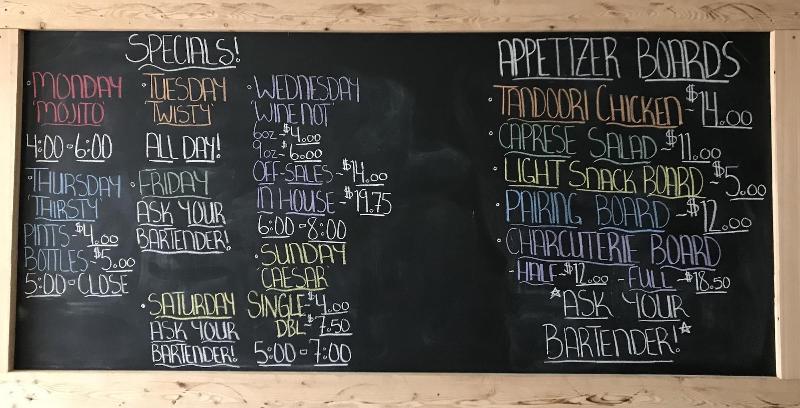 SPECIALS!
·MONDAY
'MOJITO'
4:00-6:00
·TUESDAY
'TWISTY'
ALL DAY!
·WEDNESDAY
'WINE NOT'
6oz-$4.00
9oz-$6.00
OFF-SALES-$14.00
IN HOUSE-$19.75
6:00-8:00
·THURSDAY
'THIRSTY'
PINTS-$4.00
BOTTLES-$5.00
5:00-CLOSE
·FRIDAY
ASK YOUR
BARTENDER!
·SATURDAY
ASK YOUR
BARTENDER!
·SUNDAY
'CAESAR'
SINGLE-$4.00
DBL-$7.50
5:00-7:00
APPETIZER BOARDS
·TANDOORI CHICKEN-$14.00
·CAPRESE SALAD-$11.00
·LIGHT SNACK BOARD-$5.00
·PAIRING BOARD-$12.00
·CHARCUTERIE BOARD
-HALF-$12.00 -FULL-$18.50
*ASK YOUR
BARTENDER!*